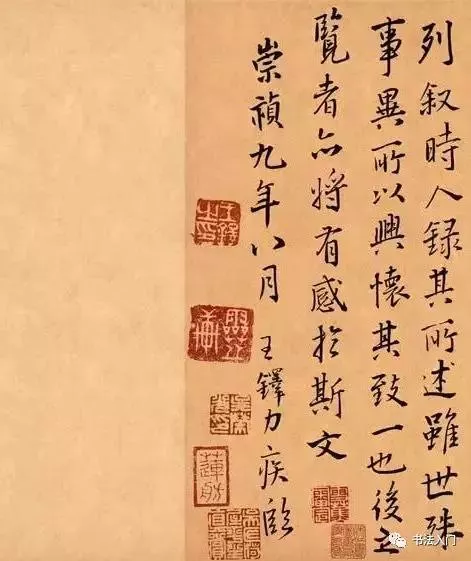 列叙時人録其所述雖世殊
事異所以興懷其致一也後之
覽者亦将有感扵斯文
崇禎九年八月 王鐸力疾臨
蓮舫
书法入门